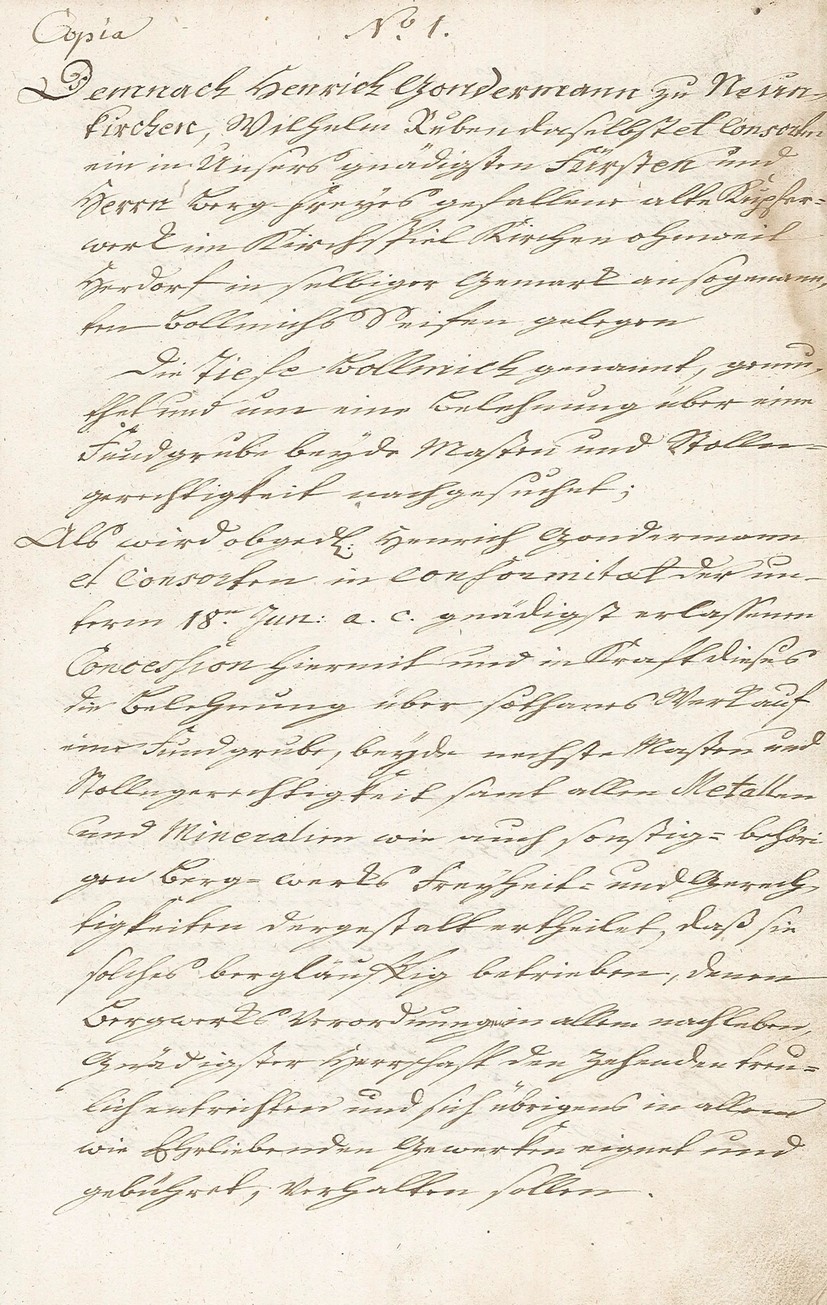 Copia
No. 1.
Demnach Henrich Gondermann zu Neun-
kirchen, Wilhelm Ruben daselbst et Consorten
ein in Unsers gnädigsten Fürsten und
Herrn Berg-Freyes gefallene alte Kupfer=
werk im Kirchspiel Kirchen ohnweit
Herdorf in selbiger Gemark an sogenann-
ten Bollnichs Seifen gelegen
Die Tiefe Bollnich genannt, gemu-
thet und um eine Belehnung über eine
Fundgrube beyde Maßen und Stolln=
gerechtigkeit nachgesuchet;
Als wird obgedl. Henrich Gondermann
et Consorten in conformitæt der un-
term 18n. Jun: a. c. gnädigst erlassenen
Concession hiermit und in Kraft dieses
die Belehnung über sothanes Werk auf
eine Fundgrube, beyde nechste Maßen und
Stollngerechtigkeit samt allen Metallen
und Mineralien wie auch sonstig= behöri
gen Berg= werks Freyheit= und Gerech
tigkeiten dergestalt ertheilet, daß sie
solches bergläuftig betreiben, denen
Bergwerks Verordnungen in allem nachleben,
Gnädigster Herrschaft den Zehenden treu=
lich entrichten und sich übrigens in allem
wie Ehrliebenden Gewerken eignet und
gebühret, verhalten sollen.